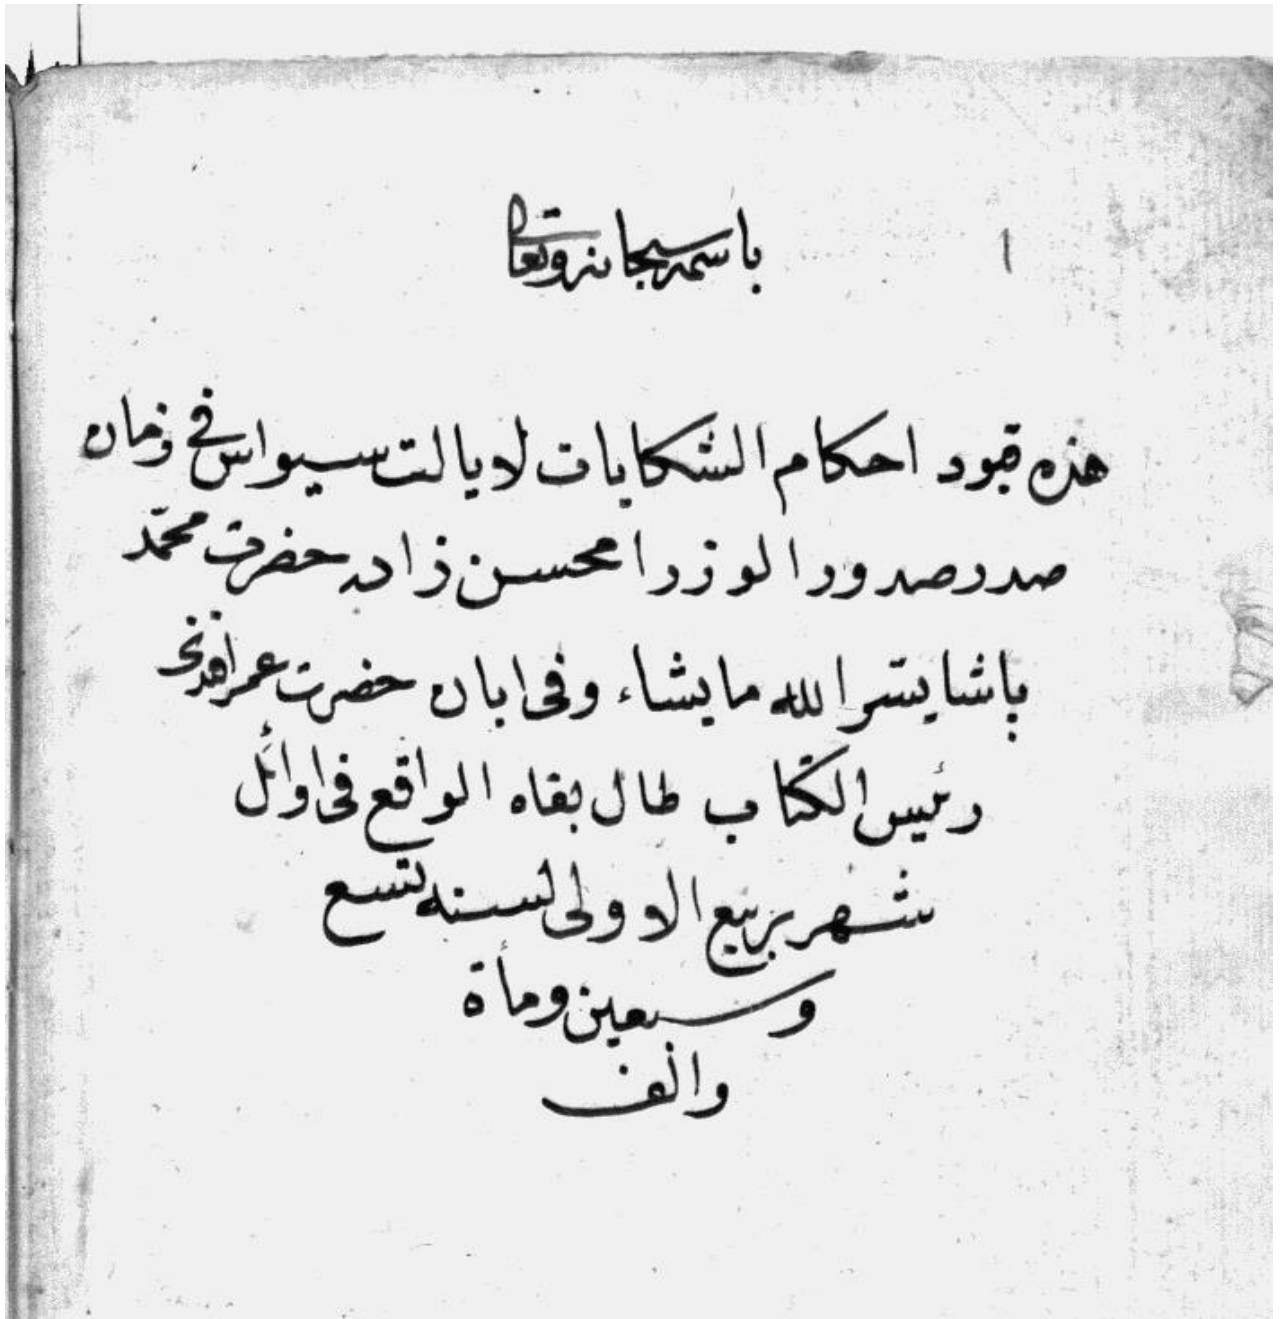 باسمه سبحانه وتعالى
١
هذه قيود احكام الشكايات لايالت سيواس فى زمان
صدر صدور الوزرا محسن زاده حضرت محمّد
پاشا يسّر الله مايشاء وفى ابان حضرت عمر افندى
رئيس الكتاب طال بقاه الواقع فى اوائل
شهر ربيع الاولى لسنه تسع
وسبعين ومأة
والف